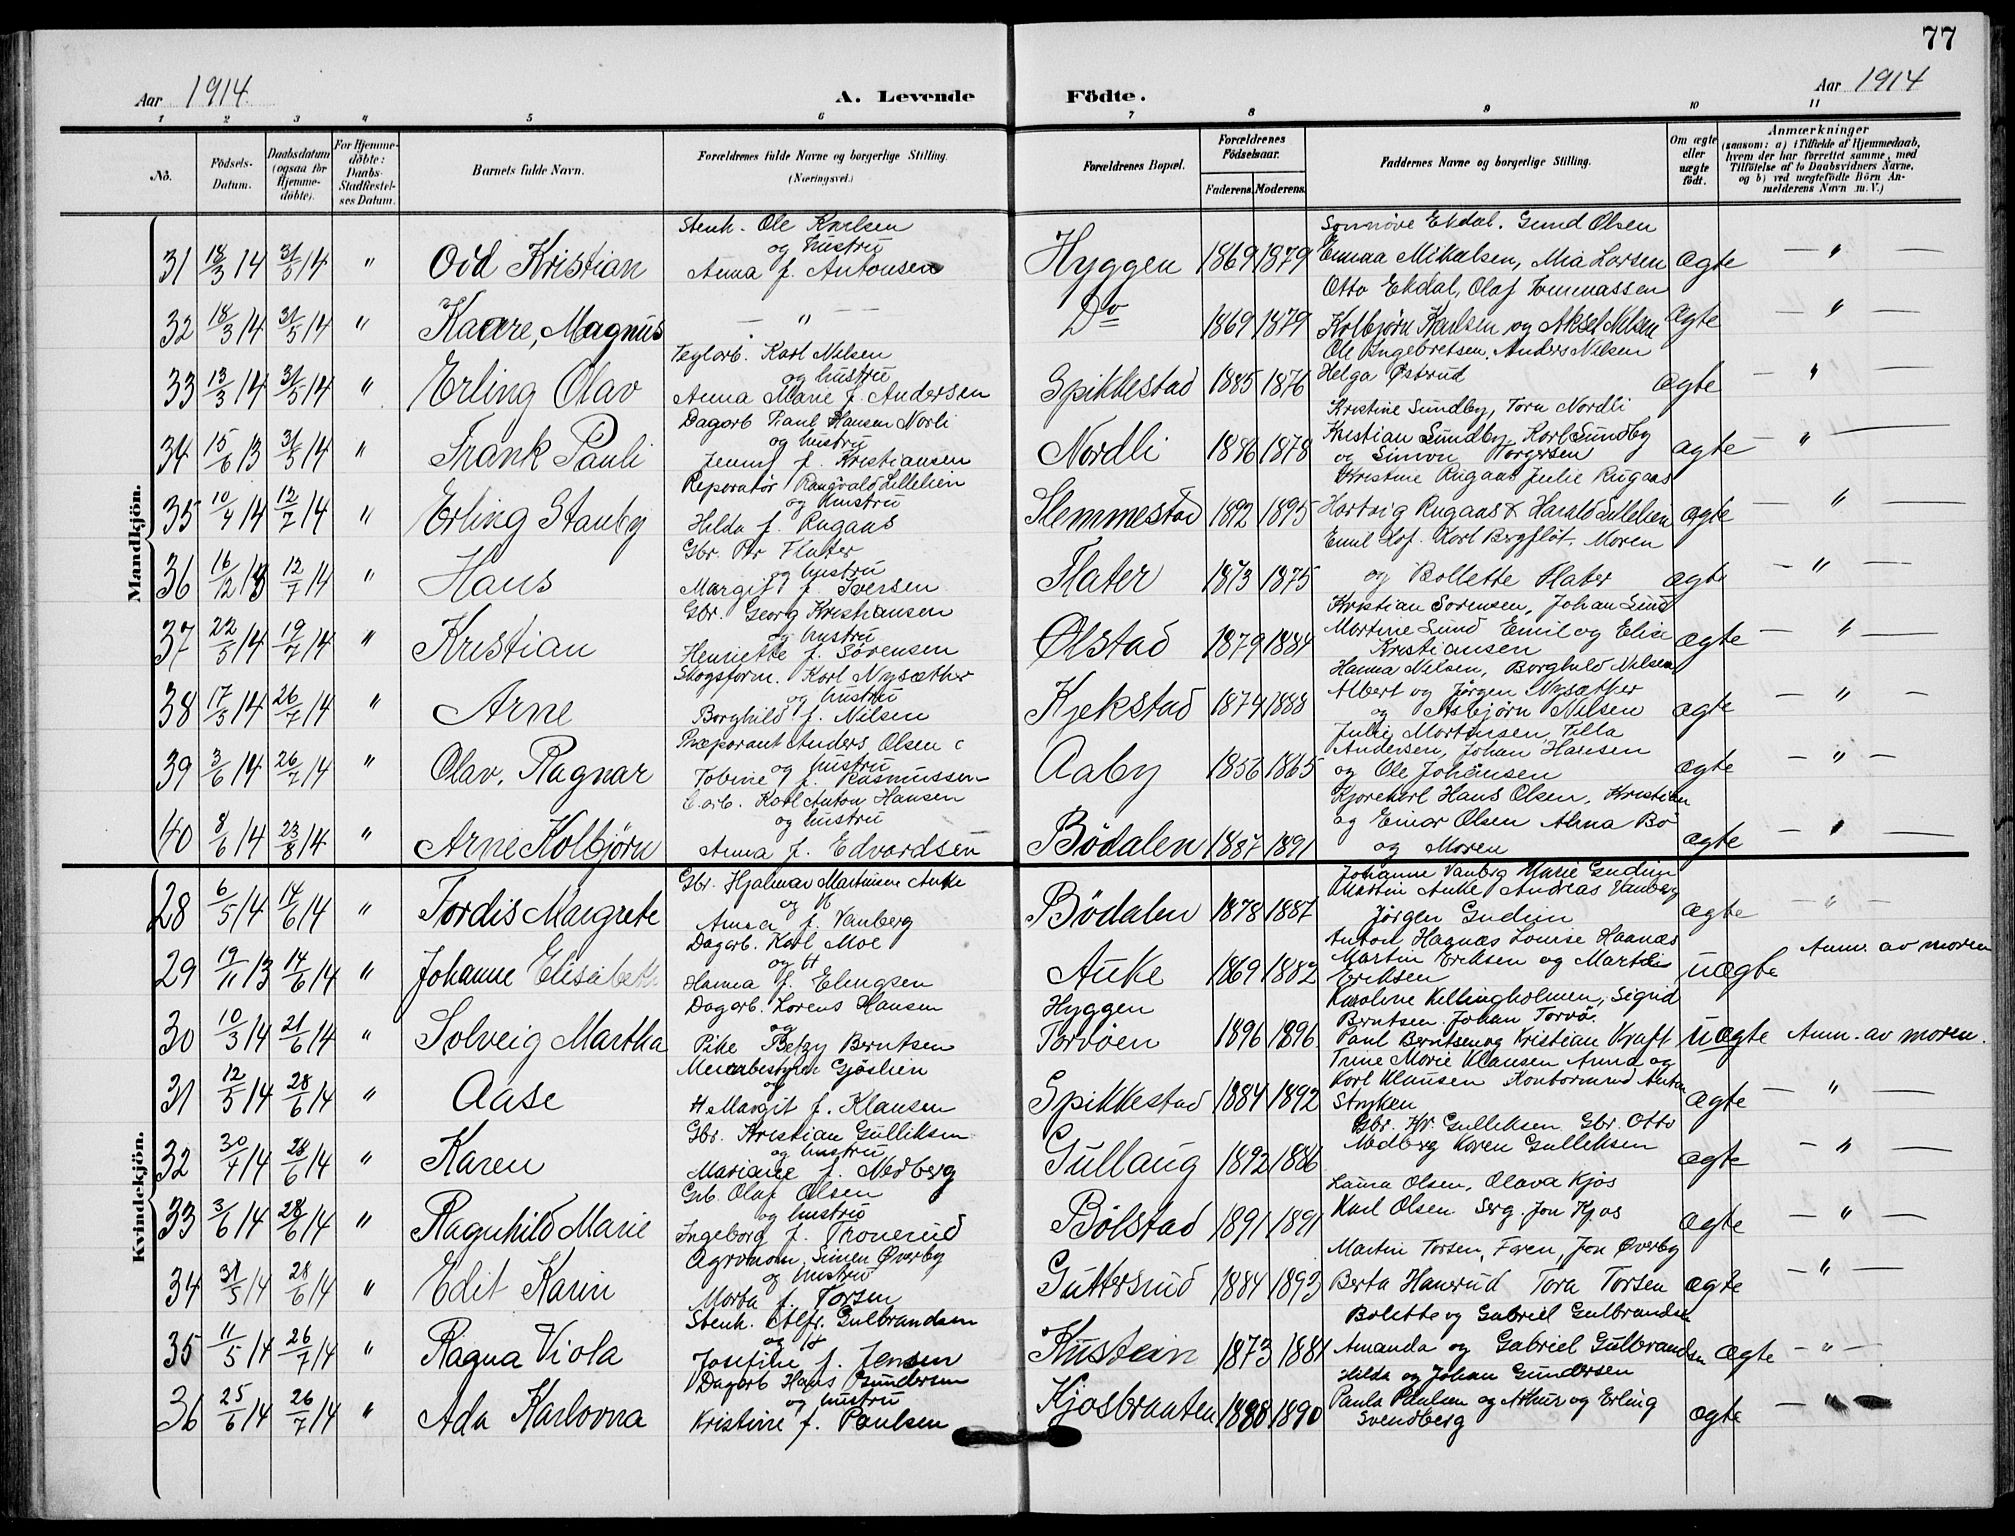 77
Aar 1914.
A. Levende Fødte.
Aar 1914
1 2 3 4 5 6 7 8 9 10 11
No. Födsels-Datum. Daabsdatum (ogsaa for Hjemme-döbte). For Hjemme-döbte: Daabs-Stadfæstel-ses Datum. Barnets fulde Navn. Forældrenes fulde Navne og borgerlige Stilling. (Næringsvei.) Forældrenes Bopæl. Forældrenes Födselsaar. Faderens. Moderens. Faddernes Navne og borgerlige Stilling. Om ægte eller uægte födt. Anmærkninger (saasom: a) i Tilfælde af Hjemmedaab, hvem der har forrettet samme, med Tilföielse af to Daabsvidners Navne, og b) ved uægtefödte Börn Anmelderens Navn m. V.)
Mandkjön.
Stenh. Ole Karlsen Gund Olsen
31 18/3 14 31/5 14 " Odd Kristian og hustru Anna f. Antonsen Hyggen 1869 1879 Emma Mikalsen, Mia Larsen ægte — " —
Otto Ekdal, Olaf Tommassen
32 18/3 14 31/5 14 " Kaare, Magnus — " — Do 1869 1879 Kolbjørn Karlsen og Aksel Nilsen ægte — " —
Teglarb. Karl Nilsen Ole Ingebretsen, Anders Nilsen
33 13/3 14 31/5 14 " Erling Olav og hustru Anna Marie f. Andersen Spikkestad 1885 1876 Helga Østrud ægte — " —
Dagarb Paul Hansen Norli Kristine Sundby, Tora Nordli
34 15/6 13 31/5 14 " Frank Pauli og hustru Jenny f. Kristiansen Nordli 1886 1878 Kristian Sundby, Karl Sundby og Simon Borgersen ægte — " —
Reparatør Rangvald Lillehen Kristine Rugaas Julie Rugaas
35 10/4 14 12/7 14 " Erling Stanby og hustru Hilda f. Rugaas Slemmestad 1892 1895 Hartvig Rugaas & Harald Lillehen ægte — " —
Gbr. Pr Flater Emil Hof. Karl Bergfløt, Moren
36 16/12 13 12/7 14 " Hans og hustru Margit f. Iversen Flater 1873 1875 og Bollette Flater ægte — " —
Gbr. Georg Kristiansen Kristian Sorensen, Johan Lund
37 22/5 14 19/7 14 " Kristian og hustru Henriette f. Sørensen Ølstad 1879 1884 Martine Lund Emil og Elise Kristiansen ægte — " —
Skogsform. Karl Nysæther Hanna Nilsen, Borghild Nilsen
38 17/5 14 26/7 14 " Arne og hustru Borghild f. Nilsen Kjekstad 1874 1888 Albert og Jørgen Nysæther og Asbjørn Nilsen ægte — " —
Præparant Anders Olsen Julie Mortensen, Tilla
39 3/6 14 26/7 14 " Olav, Ragnar og hustru Tobine f. Rasmussen Aaby 1856 1865 Andersen, Johan Hansen og Ole Johansen ægte — " —
Karl Anton Hansen Kjørekarl Hans Olsen, Kristian
40 8/6 14 23/8 14 " Arne Kolbjørn og hustru Anna f. Edvardsen Bödalen 1887 1891 og Einar Olsen Alma Bö og Moren ægte — " —
Kvindekjön.
Gbr. Hjalmar Martinsen Auke Johanne Vanberg Marie Gudim
28 6/5 14 14/6 14 " Tordis Margrete og H Anna f. Vanberg Bödalen 1878 1887 Martin Auke Andreas Vanberg Jörgen Gudim ægte — " —
Dagarb. Karl Moe Anton Hagnæs Louise Haanæs
29 19/11 13 14/6 14 " Johanne Elisabeth og H Hanna f. Elingsen Auke 1869 1882 Martin Eriksen og Eriksen uægte Anm. av moren
Dagarb. Lorens Hansen Hyggen Karoline Killingholmen, Sigrid
30 10/3 14 21/6 14 " Solveig Martha og Pike Betzy Berntsen Torvöen 1896 1896 Berntsen. Johan Torvö. Paul Berntsen og Kristian Kraft uægte Anm. av moren.
Meieribestyrer Gjöslien Trine Marie Klausen Anna og
31 12/5 14 28/6 14 " Aase og H Margit f. Klausen Spikkestad 1884 1892 Karl Klausen Kontormand Anton Stryken ægte — " —
Gbr. Kristian Gulliksen Gbr. Kr. Gulleksen Gbr. Otto
32 30/4 14 28/6 14 " Karen og hustru Mariane f. Nedberg Gullaug 1892 1886 Nedberg Karen Gulleksen ægte — " —
Grb. Olaf Olsen Laura Olsen, Olava Kjos
33 3/6 14 28/6 14 " Ragnhild Marie og hustru Ingeborg f. Thonerud Bölstad 1891 1891 Karl Olsen Serg. Jon Kjos ægte — " —
Agronom Simen Øverby Martin Torsen, Faren, Jon Øverby
34 31/5 14 28/6 14 " Edit Karin og hustru Marta f. Torsen Guttersrud 1884 1893 Berta Hanerud Tora Torsen ægte — " —
Stenh. Alfr. Gulbrandsen Bolette og Gabriel Gulbrandsen
35 11/5 14 26/7 14 " Ragna Viola og H Josefine f. Jensen Kustein 1873 1881 Amanda og Gabriel Gulbrandsen ægte — " —
Dagarb Hans Gundersen Hilda og Johan Gundersen
36 25/6 14 26/7 14 " Ada Karlovna og hustru Kristine f. Paulsen Kjosbraaten 1888 1890 Paula Paulsen og Arthur og Erling Svendberg ægte — "